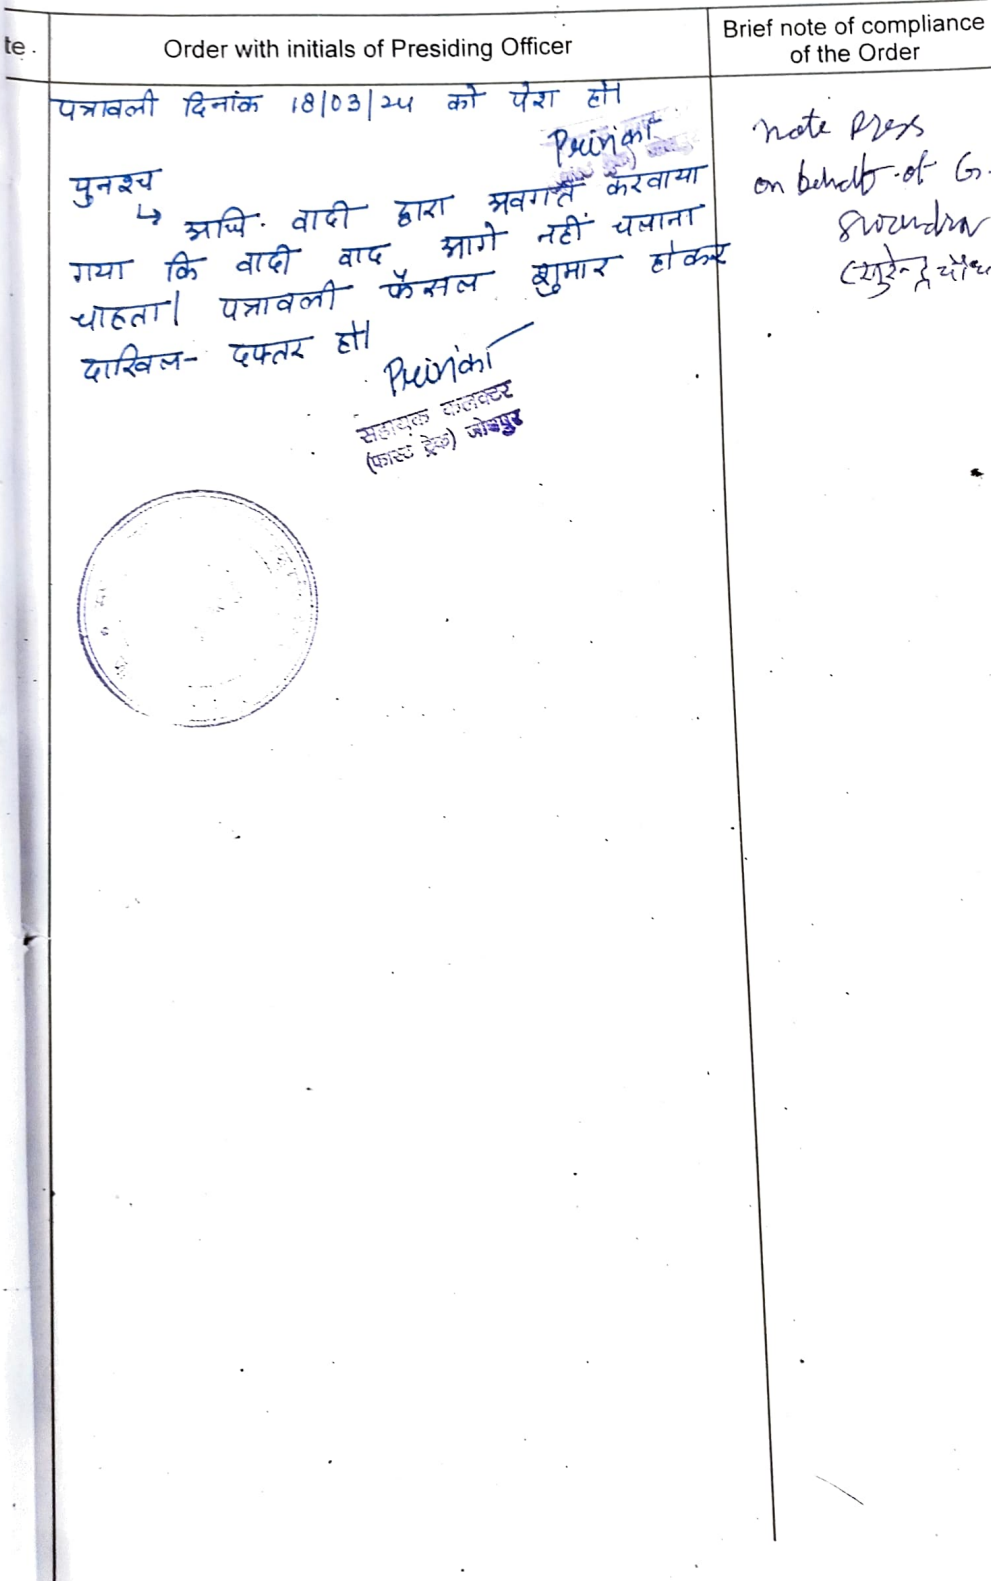 te.
Order with initials of Presiding Officer
Brief note of compliance
of the Order
पत्रावली दिनांक 18/03/24 को पेश हो।
पुनश्च
↳ अधि. वादी द्वारा अवगत करवाया
गया कि वादी वाद आगे नहीं चलाना
चाहता। पत्रावली फैसल शुमार होकर
दाखिल- दफ्तर हो।
सहायक कलक्टर
(फास्ट ट्रेक) जोधपुर
note press
on behalf of G.